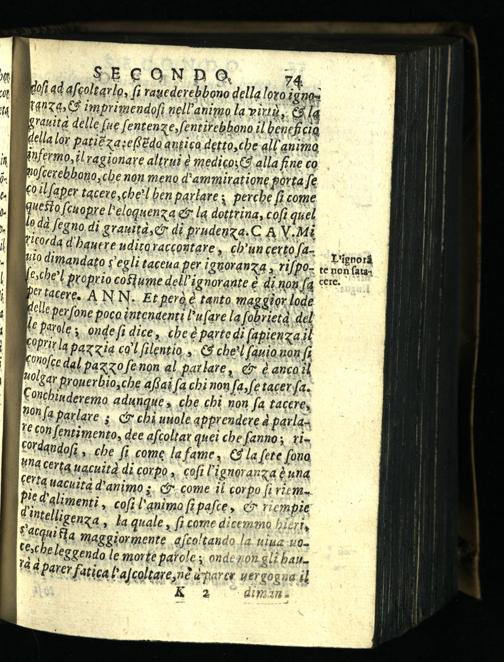 SECONDO. 74
dosi ad ascoltarlo, si rauederebbono della loro igno-
ranza, & imprimendosi nell'animo la virtù, & la
grauità delle sue sentenze, sentirebbono il beneficio
della lor patiēza: essēdo antico detto, che all'animo
infermo, il ragionare altrui è medico: & alla fine co
noscerebbono, che non meno d'ammiratione porta se
co il saper tacere, che'l ben parlare; perche si come
questo scuopre l'eloquenza & la dottrina, cosi quel
lo dà segno di grauità, & di prudenza. CAV. Mi
ricorda d'hauere udito raccontare, ch'un certo sa-
uio dimandato s'egli taceua per ignoranza, rispo-
se, che'l proprio costume dell'ignorante è di non sa
per tacere. ANN. Et però è tanto maggior lode
delle persone poco intendenti l'usare la sobrietà del
le parole; onde si dice, che è parte di sapienza il
coprir la pazzia co'l silentio, & che'l sauio non si
conosce dal pazzo se non al parlare, & è anco il
uolgar prouerbio, che assai sa chi non sa, se tacer sa.
Conchiuderemo adunque, che chi non sa tacere,
non sa parlare; & chi uuole apprendere à parla-
re con sentimento, dee ascoltar quei che sanno; ri-
cordandosi, che si come la fame, & la sete sono
una certa uacuità di corpo, cosi l'ignoranza è una
certa uacuità d'animo; & come il corpo si riem-
pie d'alimenti, cosi l'animo si pasce, & riempie
d'intelligenza, la quale, si come dicemmo hieri,
s'acquista maggiormente ascoltando la uiua uo-
ce, che leggendo le morte parole; onde non gli hau-
rà à parer fatica l'ascoltare, nè à parer uergogna il
K 2 diman-
L'ignorā
te non sata-
cere.